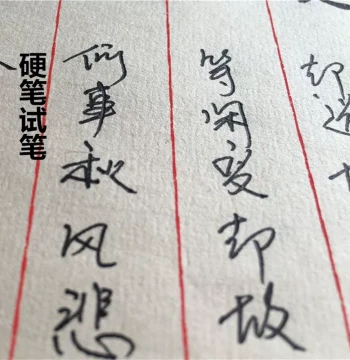 却道
等闲变却故
何事秋风悲
硬笔试笔